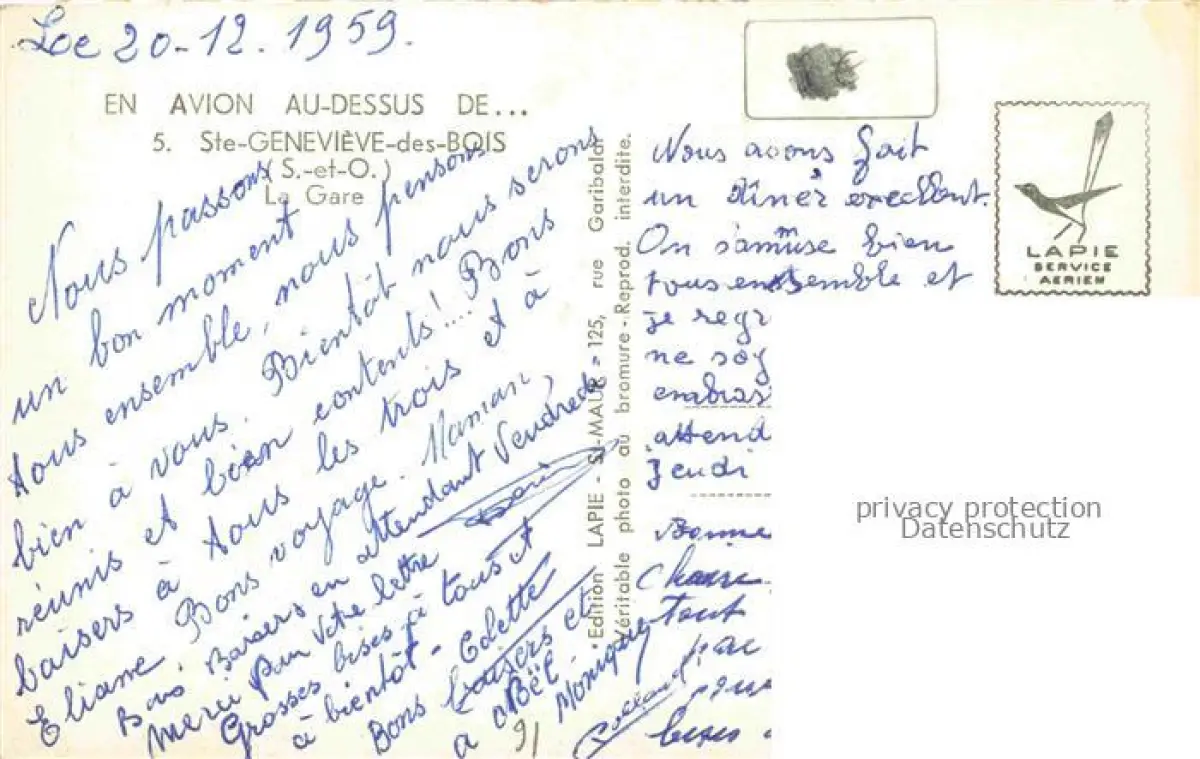 Le 20-12. 1959.
EN AVION AU-DESSUS DE...
5. Ste-GENEVIÈVE-des-BOIS
(S.-et-O.)
La Gare
Nous passons
un bon moment
tous ensemble, nous pensons
bien à vous. Bientôt nous serons
réunis et bien contents!.... Bons
baisers à tous les trois et à
Eliane. Bons voyage. Maman,
Bons Baisers en attendant Vendredi
Merci pour votre lettre
Grosses bises à tous et
à bientôt - Colette
Bons baisers et
a Noël
Monique
Edition LAPIE - St-MAUR - 125, rue Garibaldi
Véritable photo au bromure - Reprod. interdite.
Nous avons fait
un dîner
On s'amuse bien
tous ensemble et
je regr
ne soy
embras
attend
Jeudi
Bonne
Tout
par
pour
LAPIE
SERVICE
AERIEN
privacy protection
Datenschutz